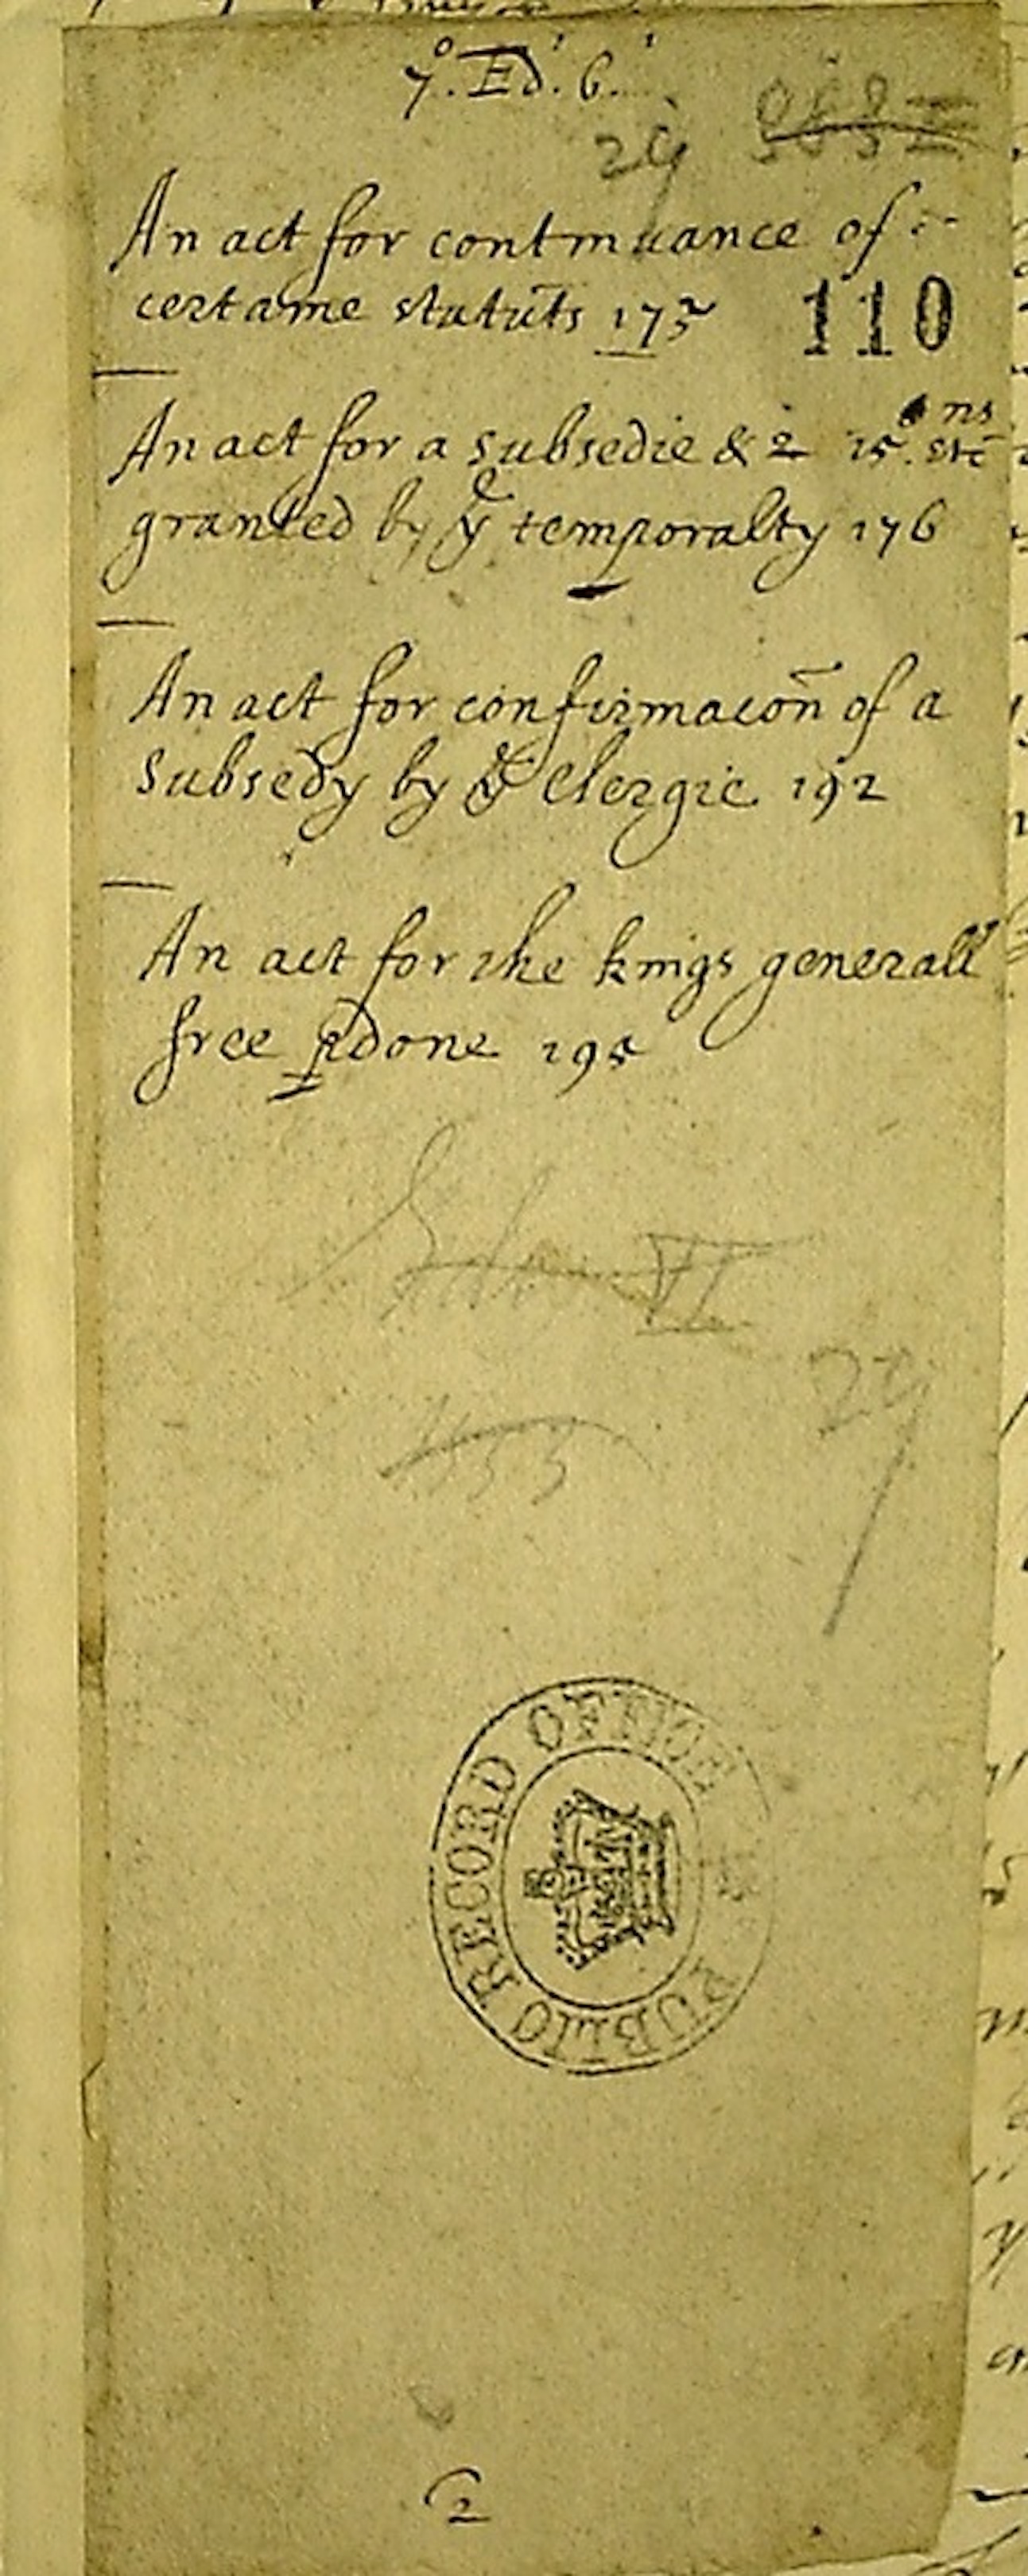 7.° Ed. 6.
29
An act for continuance of
certaine statuts 175
110
An act for a subsedie & 2 15.ns etc
granted by ye temporalty 176
An act for confirmacon of a
subsedy by ye Clergie 192
An act for the kings generall
free pdone 195
Edw VI
29
PUBLIC RECORD OFFICE
2